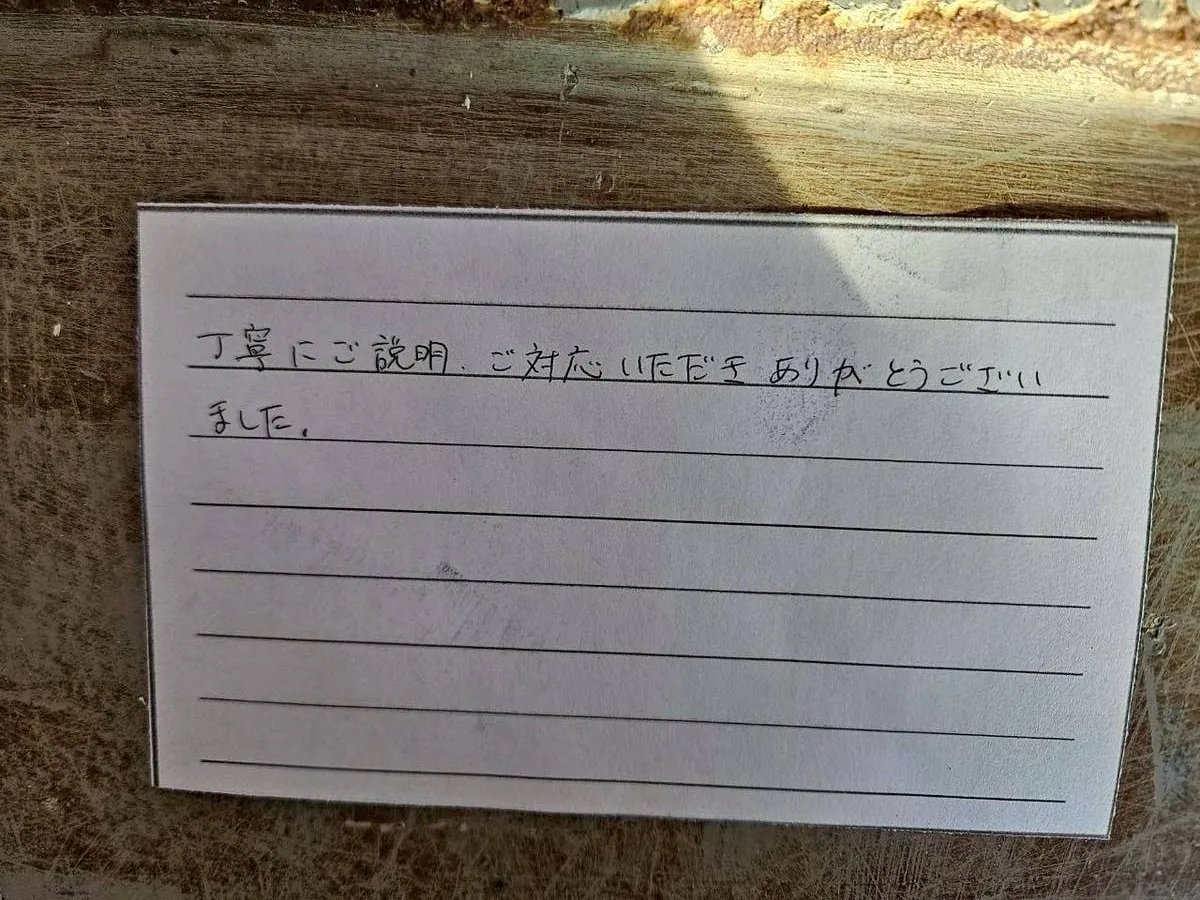 丁寧にご説明、ご対応いただきありがとうござい
ました。